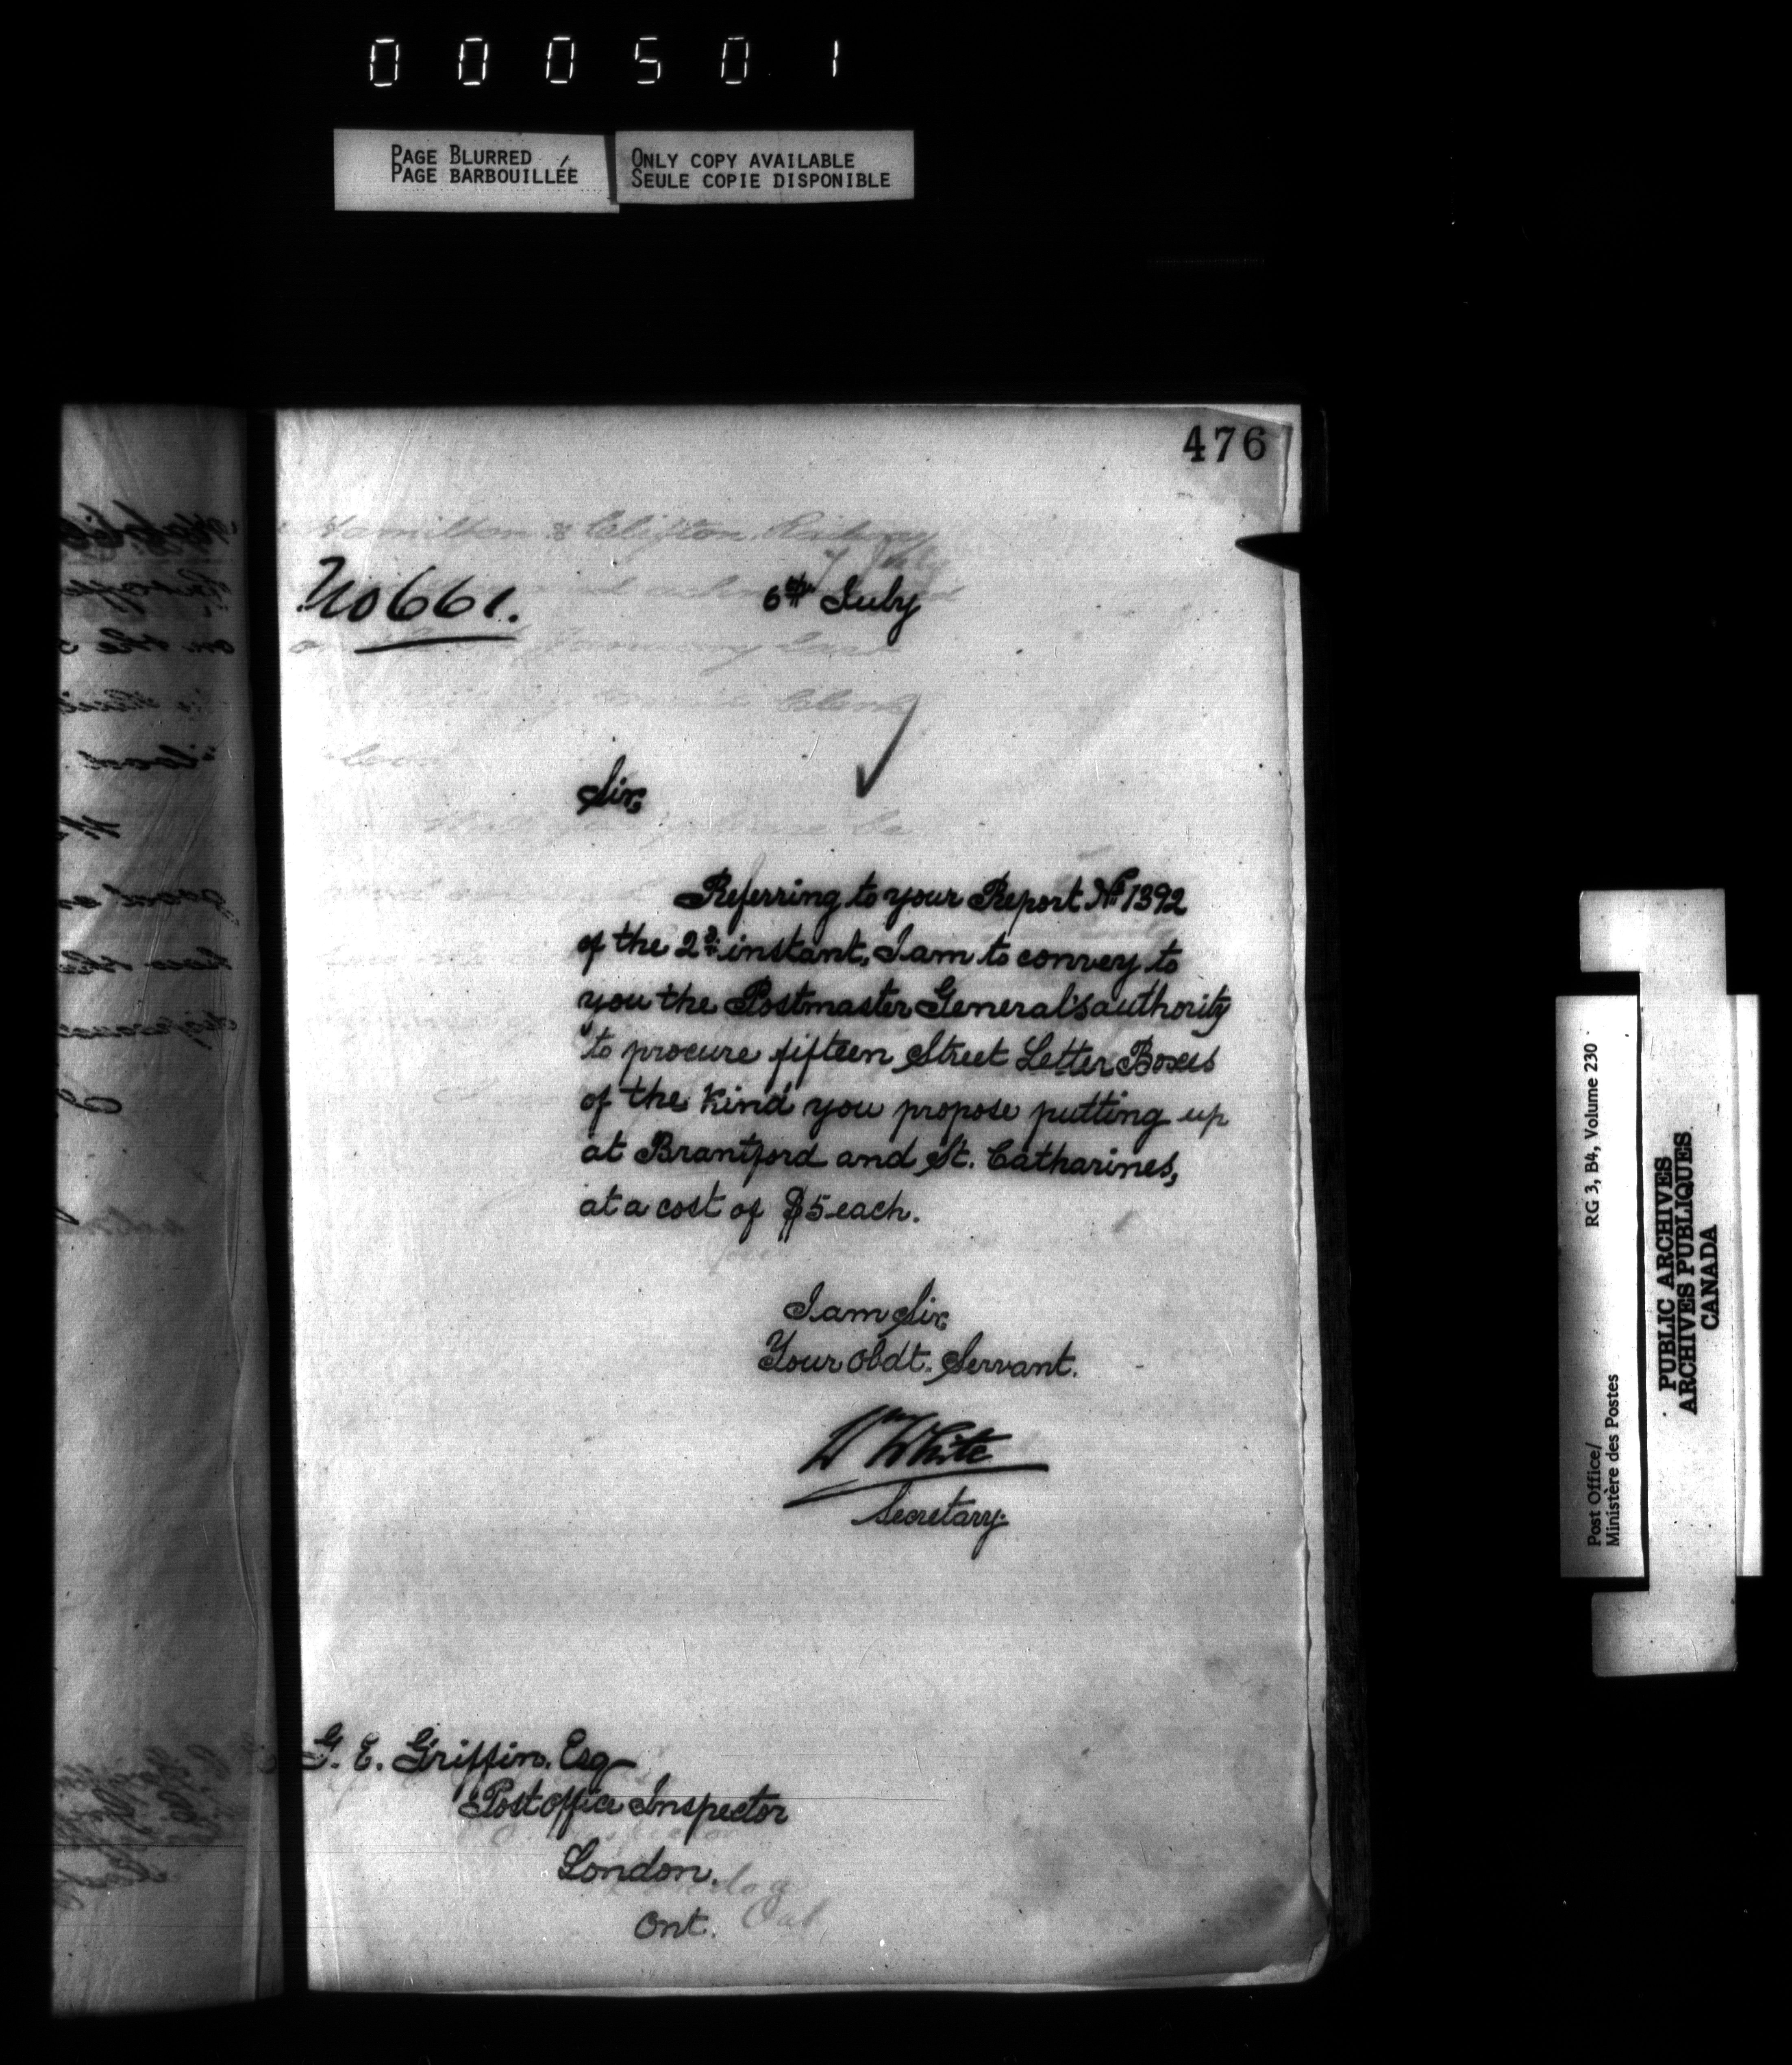 000501
PAGE BLURRED
PAGE BARBOUILLÉE
ONLY COPY AVAILABLE
SEULE COPIE DISPONIBLE
476
Hamilton & Clifton Railway
No 661.
6th July
January last
Clerk
Sir,
Referring to your Report No 1392
of the 2d instant, I am to convey to
you the Postmaster General's authority
to procure fifteen Street Letter Boxes
of the kind you propose putting up
at Brantford and St. Catharines,
at a cost of $5 each.
I am Sir,
Your obdt. Servant.
Wm White
Secretary.
G. E. Griffin, Esq
Post office Inspector
London,
Ont.
Post Office/
Ministère des Postes
RG 3, B4, Volume 230
PUBLIC ARCHIVES
ARCHIVES PUBLIQUES
CANADA